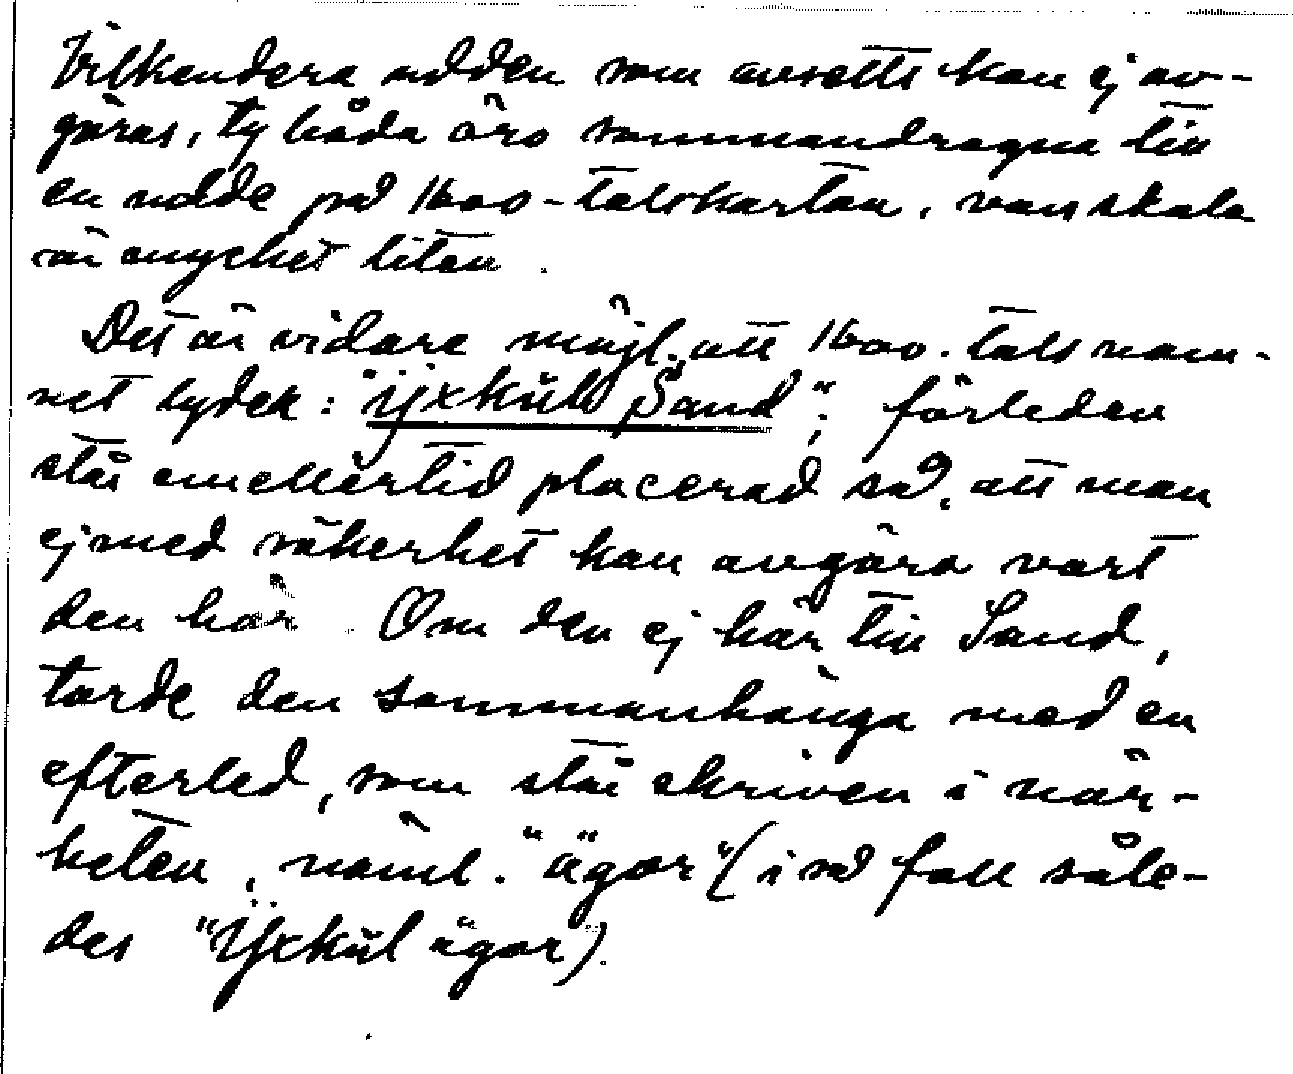 Vilkendera udden som avsetts kan ej av-
göras, ty båda äro sammandragna till
en udde på 1600-talskartan, vars skala
är mycket liten.
Det är vidare möjl. att 1600-talsnam-
net lyder: "Ÿxkülls Sand"; förleden
står emellertid placerad så, att man
ej med säkerhet kan avgöra vart
den hör. Om den ej hör till Sand,
torde den sammanhänga med en
efterled, som står skriven i när-
heten, näml. "ägor" (i så fall såle-
des "Ÿxkül ägor").